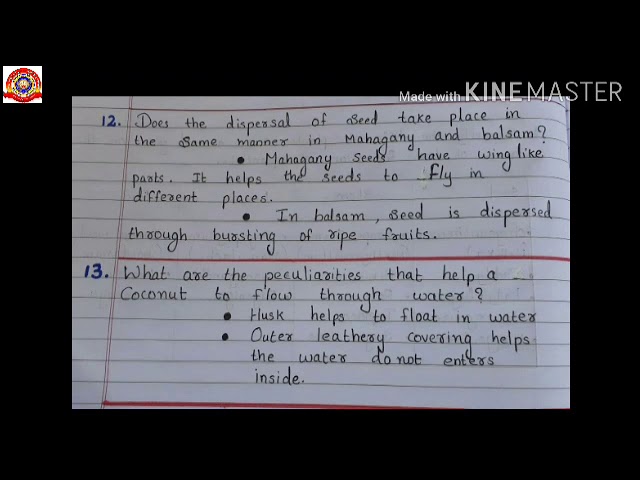 Made with KINEMASTER
12. Does the dispersal of seed take place in
the same manner in Mahagany and balsam?
• Mahagany seeds have wing like
parts. It helps the seeds to fly in
different places.
• In balsam, seed is dispersed
through bursting of ripe fruits.
13. What are the peculiarities that help a
Coconut to flow through water?
• Husk helps to float in water
• Outer leathery covering helps
the water do not enters
inside.